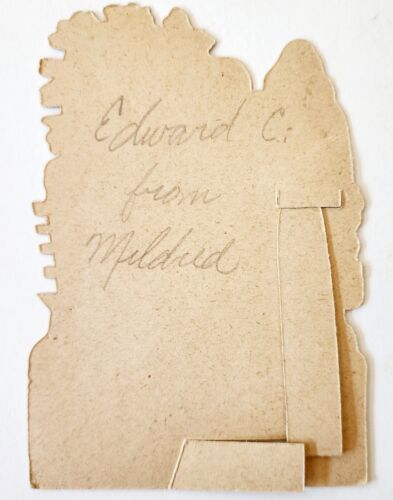 Edward C.
from
Mildred